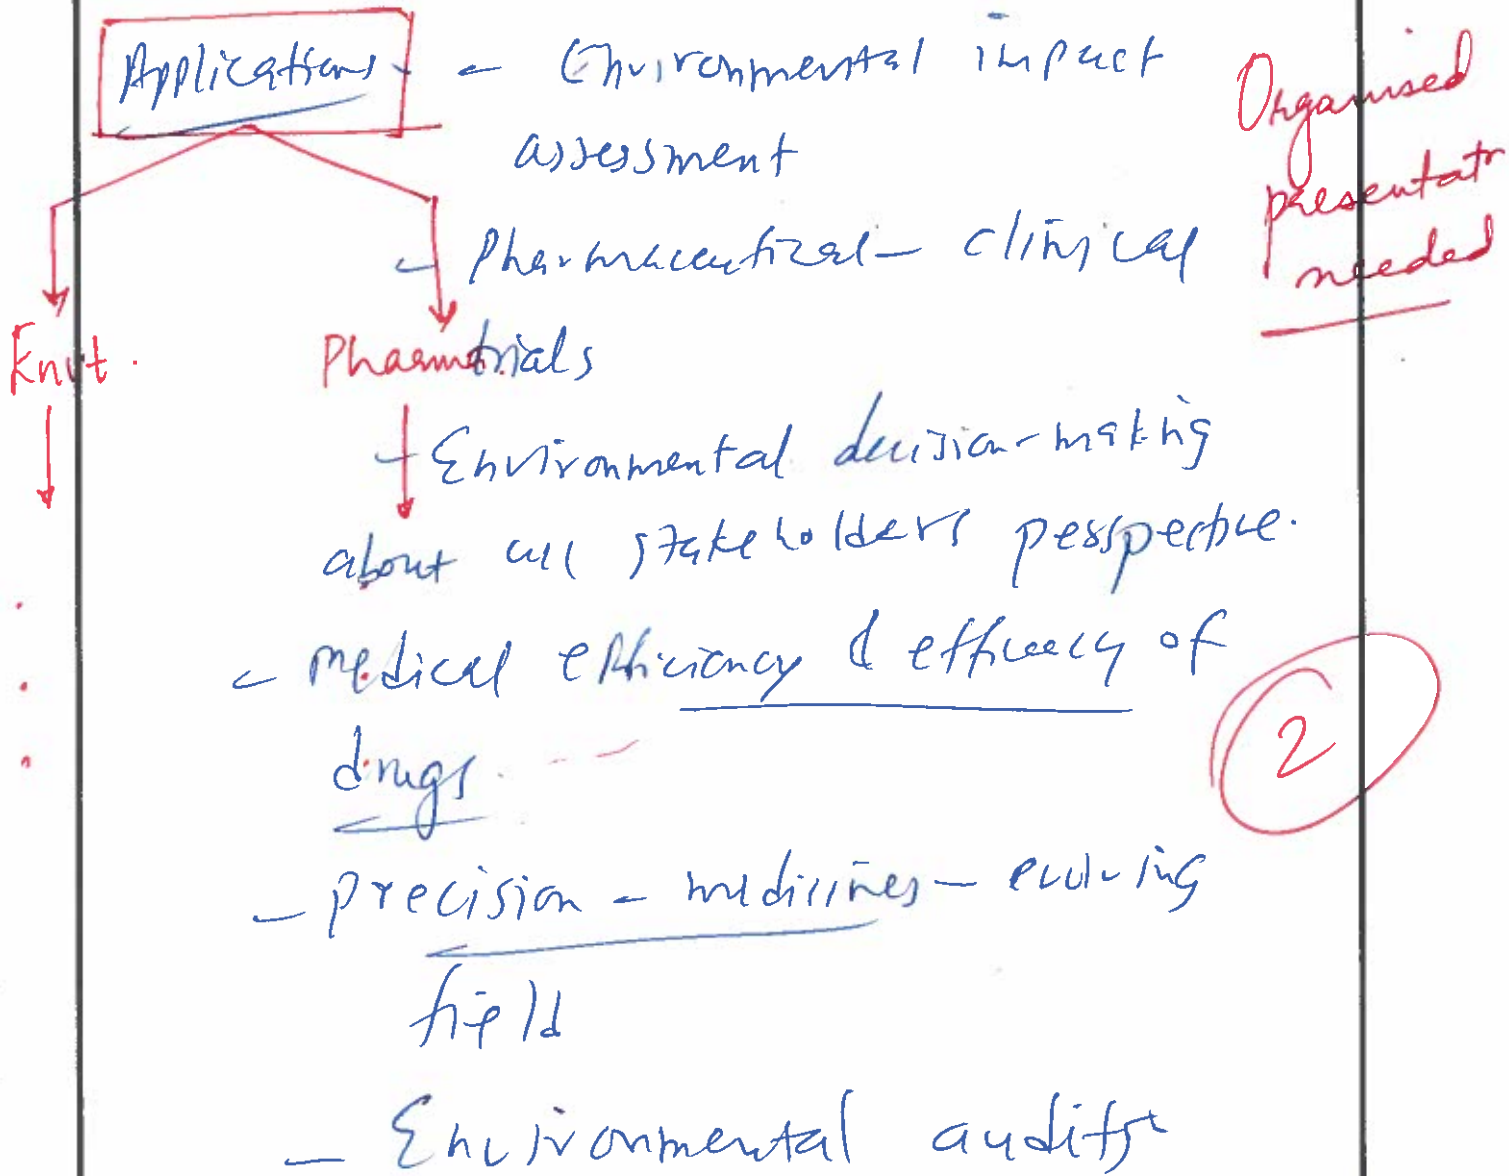 Applications - Environmental impact
assessment
Organised
presentatn
needed
- Pharmaceutical - clinical
trials
Envt.
Pharma.
- Environmental decision-making
about all stakeholders persspective.
- Medical efficiency & efficacy of
drugs.
2
- Precision - medicines - evolving
field
- Environmental audits